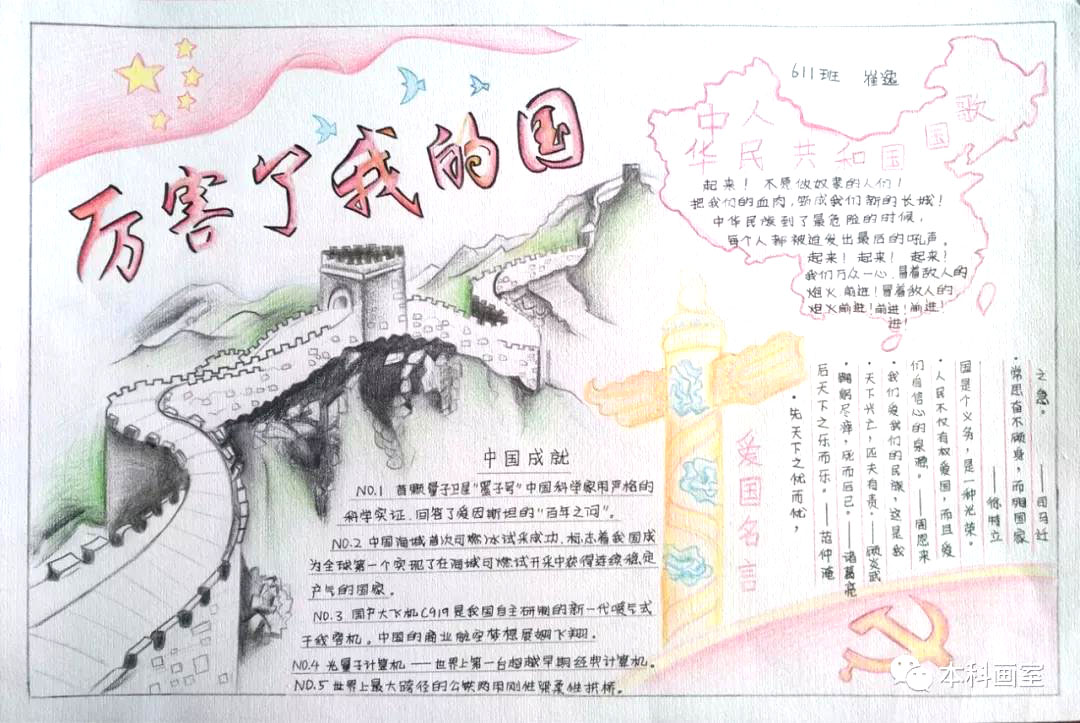 厉害了我的国
611班 崔逸
中人
华民共和国国歌
起来！不愿做奴隶的人们！
把我们的血肉，筑成我们新的长城！
中华民族到了最危险的时候，
每个人都被迫发出最后的吼声。
起来！起来！起来！
我们万众一心，冒着敌人的
炮火 前进！冒着敌人的
炮火前进！前进！前进！
进！
中国成就
NO.1 首颗量子卫星"墨子号"中国科学家用严格的
科学实证，回答了爱因斯坦的"百年之问"。
NO.2 中国海域首次可燃冰试采成功，标志着我国成
为全球第一个实现了在海域可燃冰试开采中获得连续稳定
产气的国家。
NO.3 国产大飞机C919是我国自主研制的新一代喷气式
干线客机。中国的商业航空梦想展翅飞翔．
NO.4 光量子计算机——世界上第一台超越早期经典计算机。
NO.5 世界上最大跨径的公铁两用刚性梁柔性拱桥。
爱国名言
·先天下之忧而忧，
后天下之乐而乐。——范仲淹
·鞠躬尽瘁，死而后已。——诸葛亮
·天下兴亡，匹夫有责。——顾炎武
·我们爱我们的民族，这是我
们自信心的泉源。——周恩来
·人民不仅有权爱国，而且爱
国是个义务，是一种光荣。
——徐特立
·常思奋不顾身，而殉国家
之急。——司马迁
本科画室